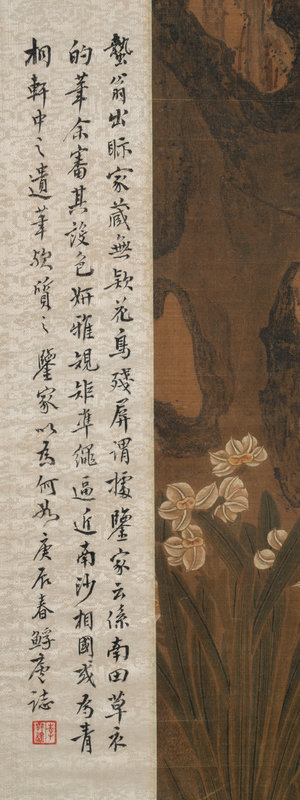 蟄翁出眎家藏無款花鳥殘屏謂據鑒家云係南田草衣
的筆余審其設色妍雅規矩準繩逼近南沙相國或為青
桐軒中之遺筆欤質之鑒家以為何如庚辰春鮮廬誌